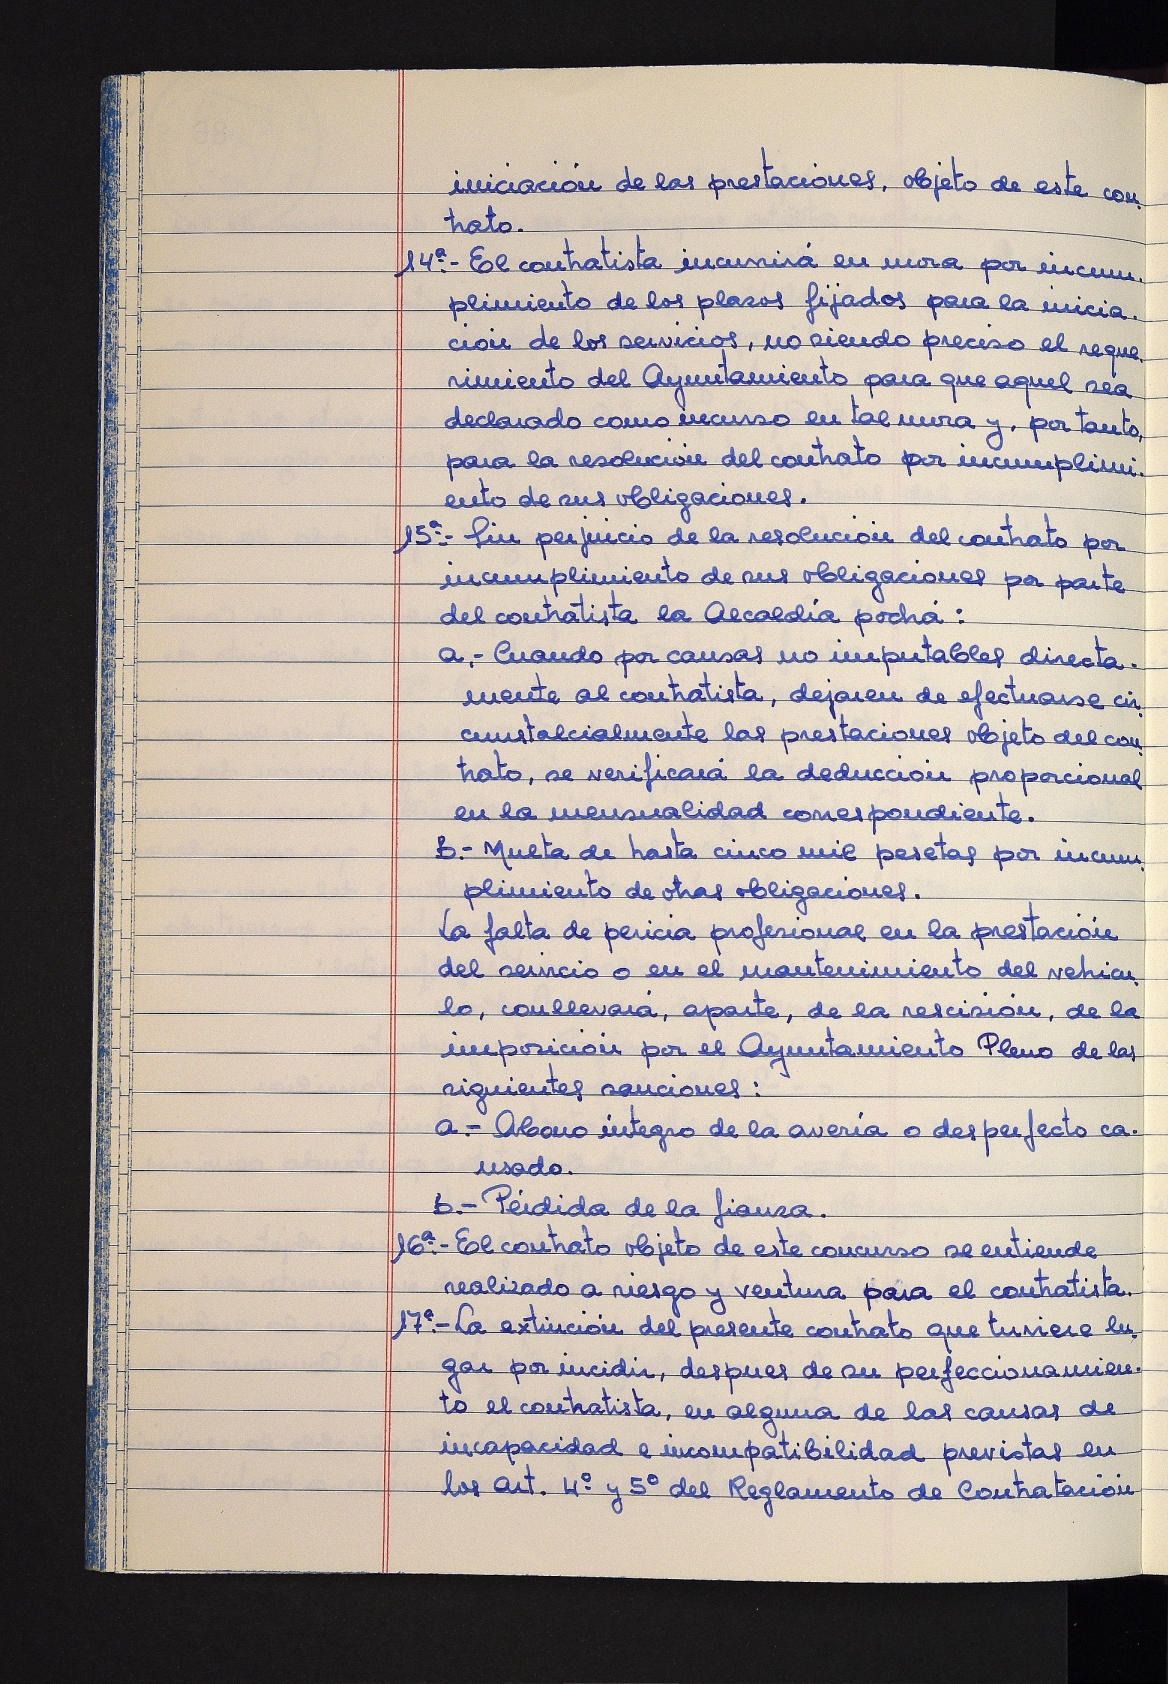 iniciación de las prestaciones, objeto de este con-
trato.
14ª.- El contratista incurrirá en mora por incum-
plimiento de los plazos fijados para la inicia-
ción de los servicios, no siendo preciso el reque-
rimiento del Ayuntamiento para que aquel sea
declarado como incurso en tal mora y, por tanto,
para la resolución del contrato por incumplimi-
ento de sus obligaciones.
15ª.- Sin perjuicio de la resolución del contrato por
incumplimiento de sus obligaciones por parte
del contratista la Alcaldía podrá:
a.- Cuando por causas no imputables directa-
mente al contratista, dejaren de efectuarse cir-
cunstalcialmente las prestaciones objeto del con-
trato, se verificará la deducción proporcional
en la mensualidad correspondiente.
b.- Multa de hasta cinco mil pesetas por incum-
plimiento de otras obligaciones.
La falta de pericia profesional en la prestación
del servicio o en el mantenimiento del vehícu-
lo, conllevará, aparte, de la rescisión, de la
imposición por el Ayuntamiento Pleno de las
siguientes sanciones:
a.- Abono íntegro de la avería o desperfecto ca-
usado.
b.- Pérdida de la fianza.
16ª.- El contrato objeto de este concurso se entiende
realizado a riesgo y ventura para el contratista.
17ª.- La extinción del presente contrato que tuviere lu-
gar por incidir, despues de su perfeccionamien-
to el contratista, en alguna de las causas de
incapacidad e incompatibilidad previstas en
los art. 4º y 5º del Reglamento de Contratación